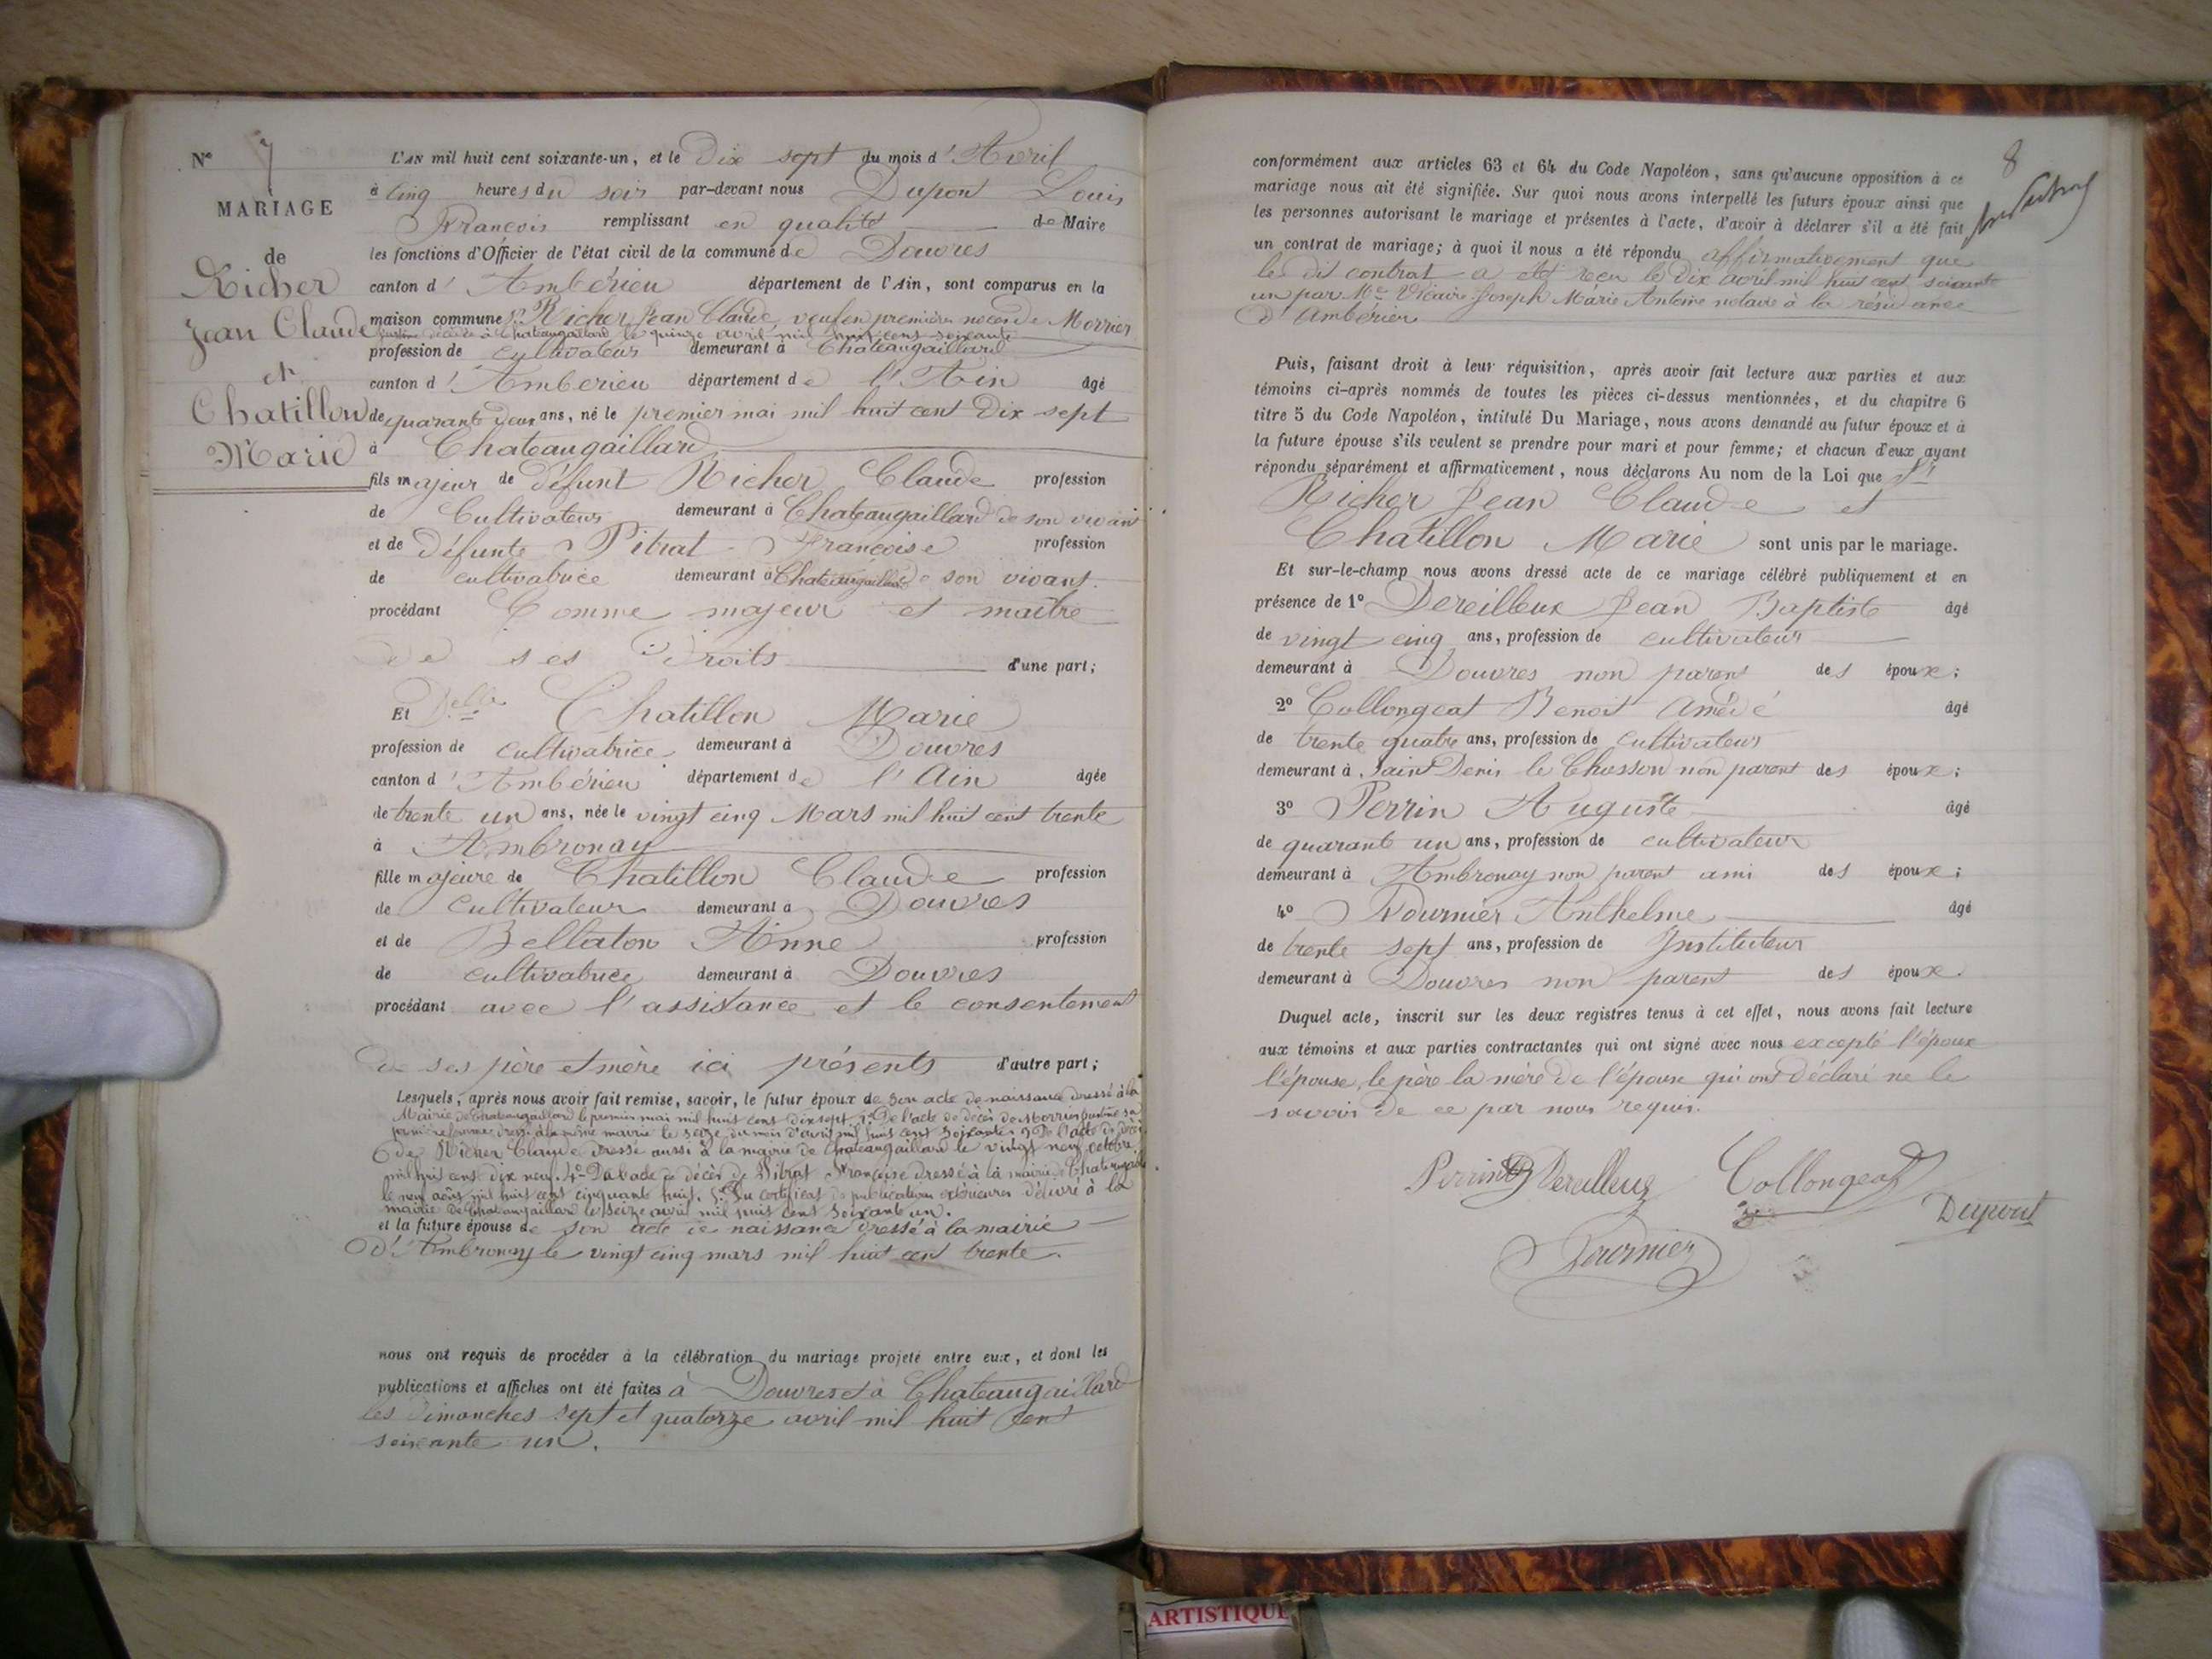 N° 7
MARIAGE
de
Richer
Jean Claude
et
Chatillon
Marie
L'AN mil huit cent soixante-un, et le Dix sept du mois d'Avril
à cinq heures du soir par-devant nous Dupont Louis
François remplissant en qualité de Maire
les fonctions d'Officier de l'état civil de la commune de Douvres
canton d'Ambérieu département de l'Ain, sont comparus en la
maison commune Sr Richer Jean Claude veuf en premières noces de Morrier
décédée à Chateaugaillard le quinze avril mil huit cent soixante
profession de cultivateur demeurant à Chateaugaillard
canton d'Ambérieu département de l'Ain âgé
de quarante deux ans, né le premier mai mil huit cent Dix sept
à Chateaugaillard
fils majeur de défunt Richer Claude profession
de Cultivateur demeurant à Chateaugaillard de son vivant
et de défunte Pitrat Françoise profession
de cultivatrice demeurant à Chateaugaillard de son vivant.
procédant Comme majeur et maître
de ses droits d'une part;
Et Delle Chatillon Marie
profession de cultivatrice demeurant à Douvres
canton d'Ambérieu département de l'Ain âgée
de trente un ans, née le vingt cinq Mars mil huit cent trente
à Ambronay
fille majeure de Chatillon Claude profession
de Cultivateur demeurant à Douvres
et de Bellaton Anne profession
de cultivatrice demeurant à Douvres
procédant avec l'assistance et le consentement
de ses père et mère ici présents d'autre part;
Lesquels, après nous avoir fait remise, savoir, le futur époux de son acte de naissance dressé à la
Mairie de Chateaugaillard le premier mai mil huit cent dix sept. 2° De l'acte de décès de Morrier sa
première femme dressé à la même mairie le seize du mois d'avril mil huit cent soixante. 3° De l'acte de décès
de Richer Claude dressé aussi à la mairie de Chateaugaillard le vingt neuf octobre
mil huit cent dix neuf. 4° De l'acte de décès de Pitrat Françoise dressé à la mairie de Chateaugaillard
le neuf août mil huit cent cinquante huit. 5° Du certificat de publications extérieures délivré à la
mairie de Chateaugaillard le seize avril mil huit cent soixante un.
et la future épouse de son acte de naissance dressé à la mairie
d'Ambronay le vingt cinq mars mil huit cent trente.
nous ont requis de procéder à la célébration du mariage projeté entre eux, et dont les
publications et affiches ont été faites à Douvres et à Chateaugaillard
les Dimanches sept et quatorze avril mil huit cent
soixante un.
8
conformément aux articles 63 et 64 du Code Napoléon, sans qu'aucune opposition à ce
mariage nous ait été signifiée. Sur quoi nous avons interpellé les futurs époux ainsi que
les personnes autorisant le mariage et présentes à l'acte, d'avoir à déclarer s'il a été fait
un contrat de mariage; à quoi il nous a été répondu affirmativement que
le dit contrat a été reçu le Dix avril mil huit cent soixante
un par Me Vicaire Joseph Marie Antoine notaire à la résidence
d'Ambérieu
Puis, faisant droit à leur réquisition, après avoir fait lecture aux parties et aux
témoins ci-après nommés de toutes les pièces ci-dessus mentionnées, et du chapitre 6
titre 5 du Code Napoléon, intitulé Du Mariage, nous avons demandé au futur époux et à
la future épouse s'ils veulent se prendre pour mari et pour femme; et chacun d'eux ayant
répondu séparément et affirmativement, nous déclarons Au nom de la Loi que Sr
Richer Jean Claude et
Chatillon Marie sont unis par le mariage.
Et sur-le-champ nous avons dressé acte de ce mariage célébré publiquement et en
présence de 1° Dereilleux Jean Baptiste âgé
de vingt cinq ans, profession de cultivateur
demeurant à Douvres non parent des époux;
2° Collongeat Benoit Amédé âgé
de trente quatre ans, profession de Cultivateur
demeurant à Saint Denis le Chosson non parent des époux;
3° Perrin Auguste âgé
de quarante un ans, profession de cultivateur
demeurant à Ambronay non parent ami des époux;
4° Fournier Anthelme âgé
de trente sept ans, profession de Instituteur
demeurant à Douvres non parent des époux.
Duquel acte, inscrit sur les deux registres tenus à cet effet, nous avons fait lecture
aux témoins et aux parties contractantes qui ont signé avec nous excepté l'époux
l'épouse, le père la mère de l'épouse qui ont déclaré ne le
savoir de ce par nous requis.
Perrin Dereilleux Collongeat
Dupont
Fournier
ARTISTIQUE